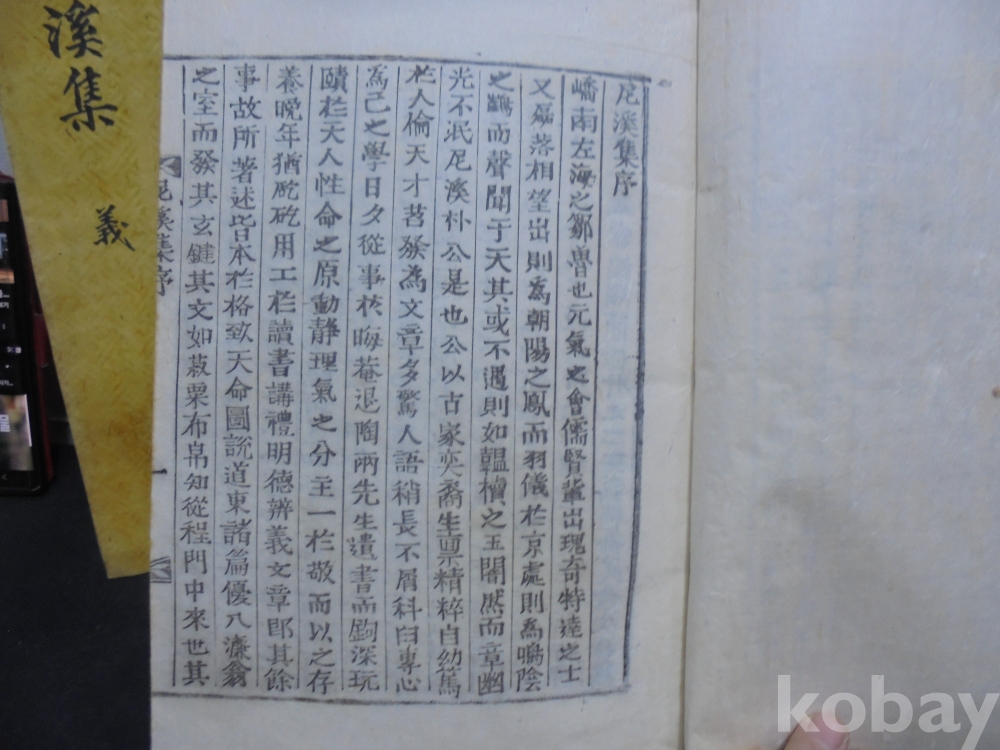 尼溪集序
嶠南左海之鄒魯也元氣之會儒賢輩出瑰奇特達之士
又磊落相望出則為朝陽之鳳而羽儀於京處則為鳴陰
之鶴而聲聞于天其或不遇則如韞櫝之玉闇然而章幽
光不泯尼溪朴公是也公以古家奕裔生禀精粹自幼篤
於人倫天才茗發為文章多驚人語稍長不屑科臼專心
為己之學日夕從事於晦菴退陶兩先生遺書而鉤深玩
賾於天人性命之原動靜理氣之分主一於敬而以之存
養晩年猶矻矻用工於讀書講禮明德辨義文章卽其餘
事故所著述皆本於格致天命圖說道東諸篇優入濂翁
之室而發其玄鍵其文如菽粟布帛知從程門中來也其
尼溪集序
一
溪集
義
kobay